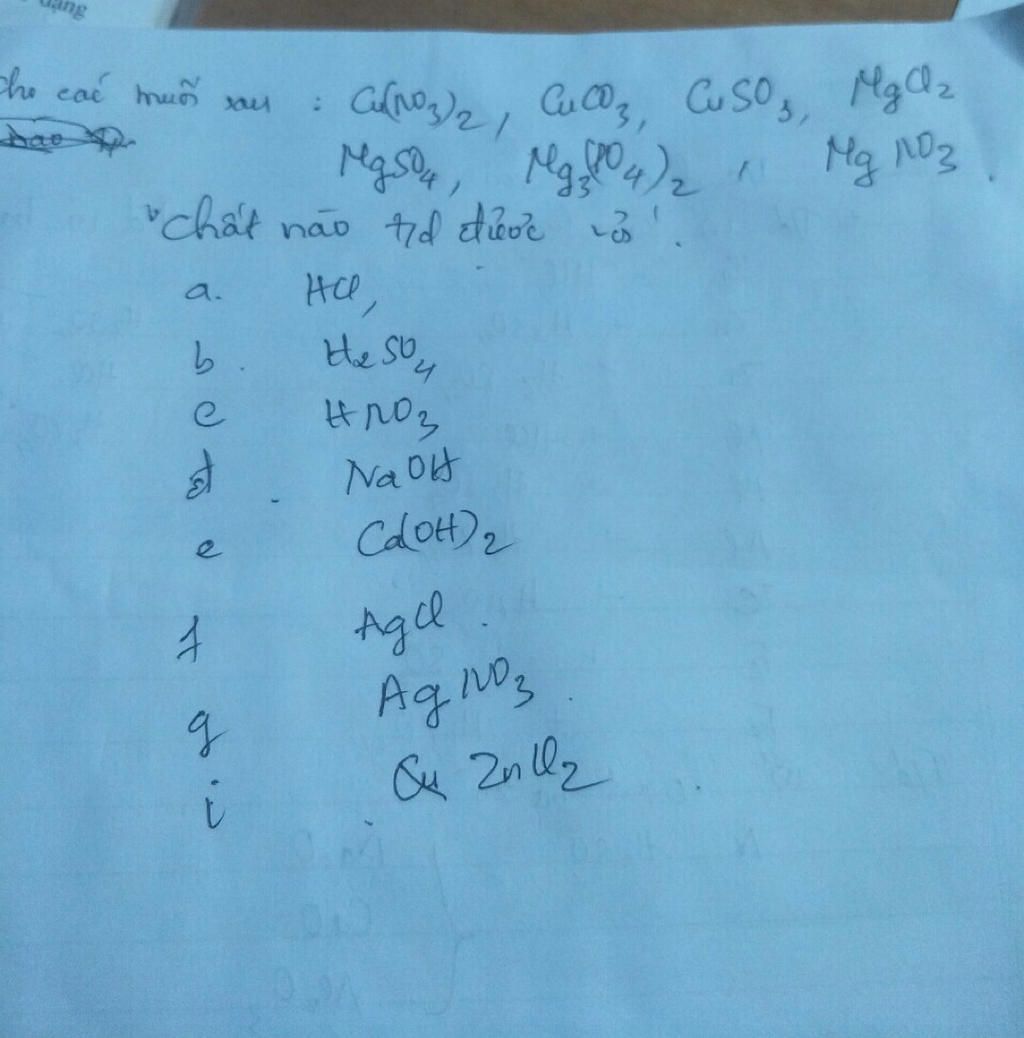 dạng
Cho các muối sau : Cu(NO3)2, CuCO3, CuSO3, MgCl2
MgSO4, Mg3(PO4)2, MgNO3.
Chất nào t/d được với.
a. HCl,
b. H2SO4
c HNO3
d. NaOH
e Ca(OH)2
f AgCl.
g AgNO3.
i ZnCl2.